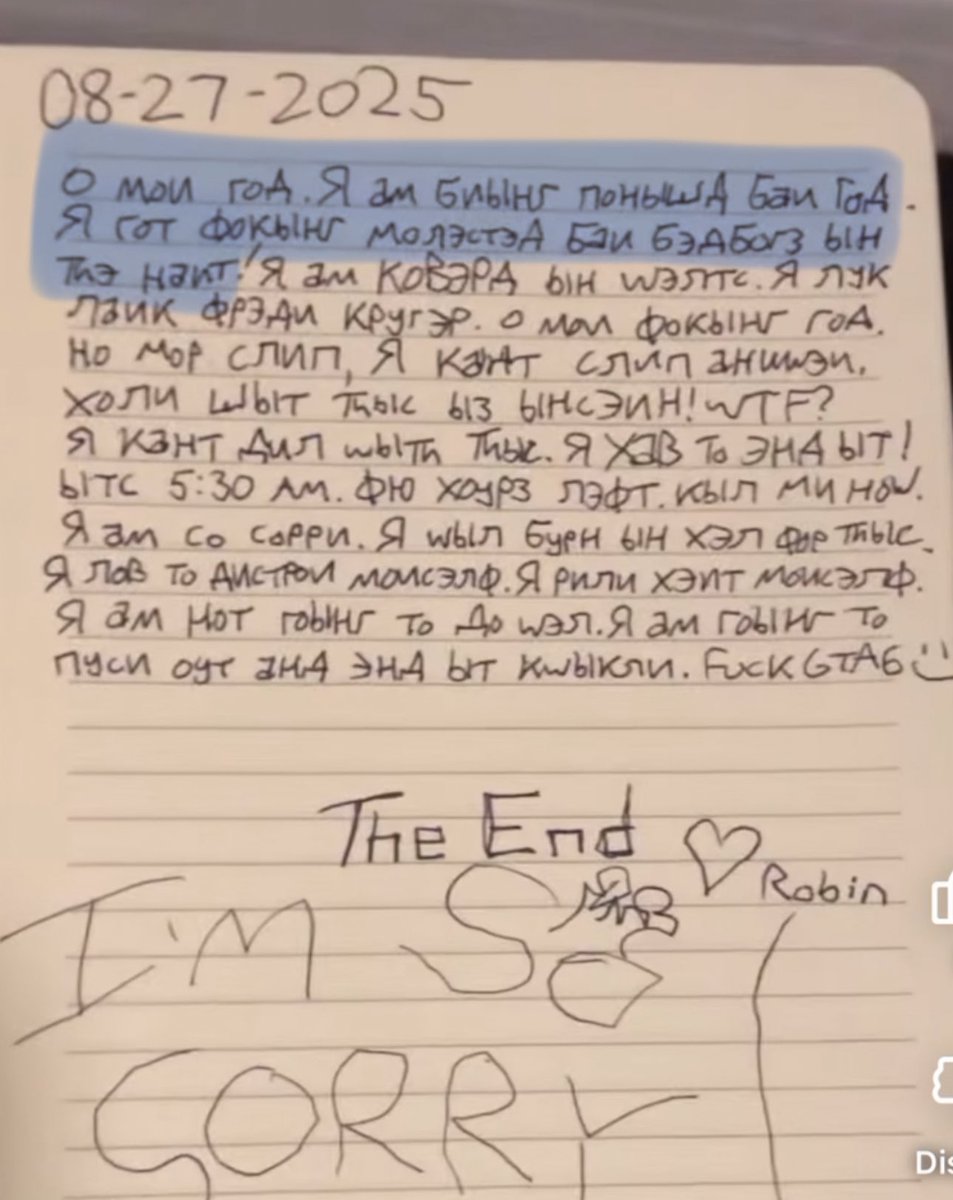 08-27-2025
О мои год. Я ам биынг понышд баи год.
Я гот фокынг молэстэд баи бэдбогз ын
тhэ наит! Я ам ковэрд ын wэлтс. Я лук
лаик Фрэди Кругэр. О мои фокынг год.
Но мор слип, Я кант слип аниwэи.
Холи шыт тhыс ыз ынсэин! WTF?
Я кант дил wыth тhыс. Я хэв то энд ыт!
Ытс 5:30 AM. Фю хоурз лэфт. Кыл ми ноw.
Я ам со сорри. Я wыл бурн ын хэл фор тhыс.
Я лов то дистрои моисэлф. Я рили хэит моисэлф.
Я ам нот гоынг то до wэл. Я ам гоынг то
пуси оут анд энд ыт кwыкли. Fuck GTA6 :)
The End ♡
Robin
I'm So
SORRY
Dis